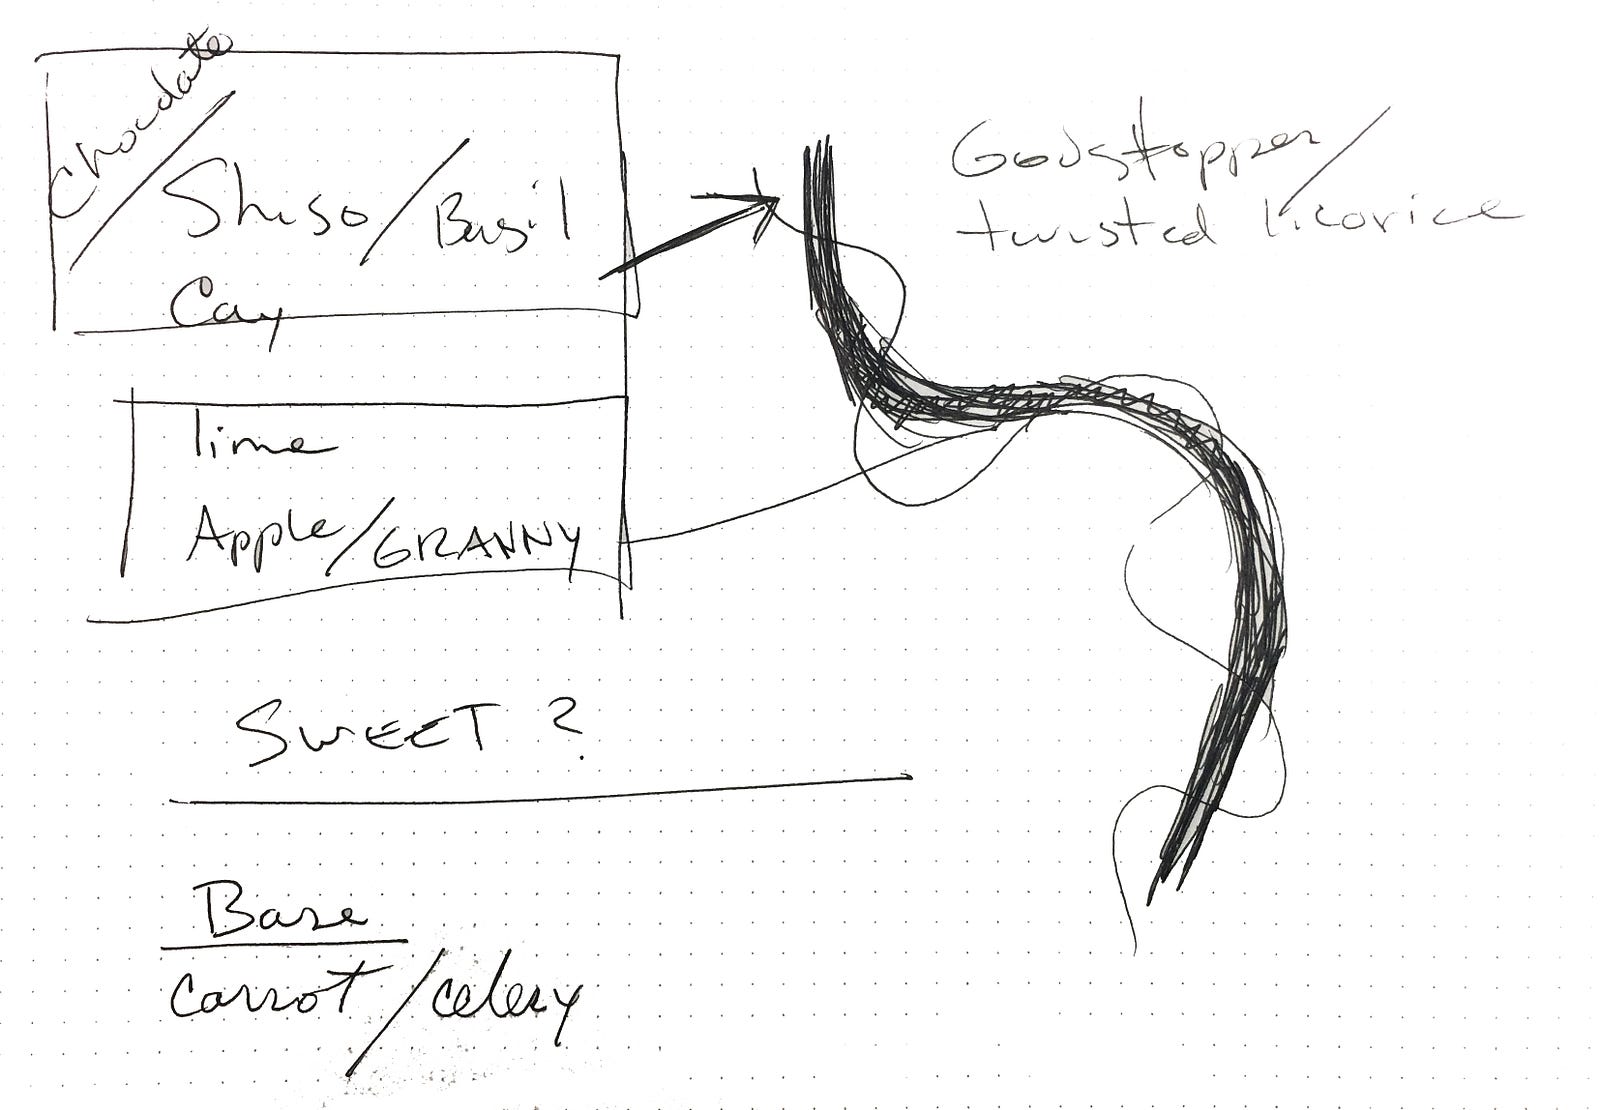 Chocolate/
Shiso/Basil
Cay
lime
Apple/GRANNY
SWEET ?
Base
carrot/celery
Gobstopper/
twisted licorice